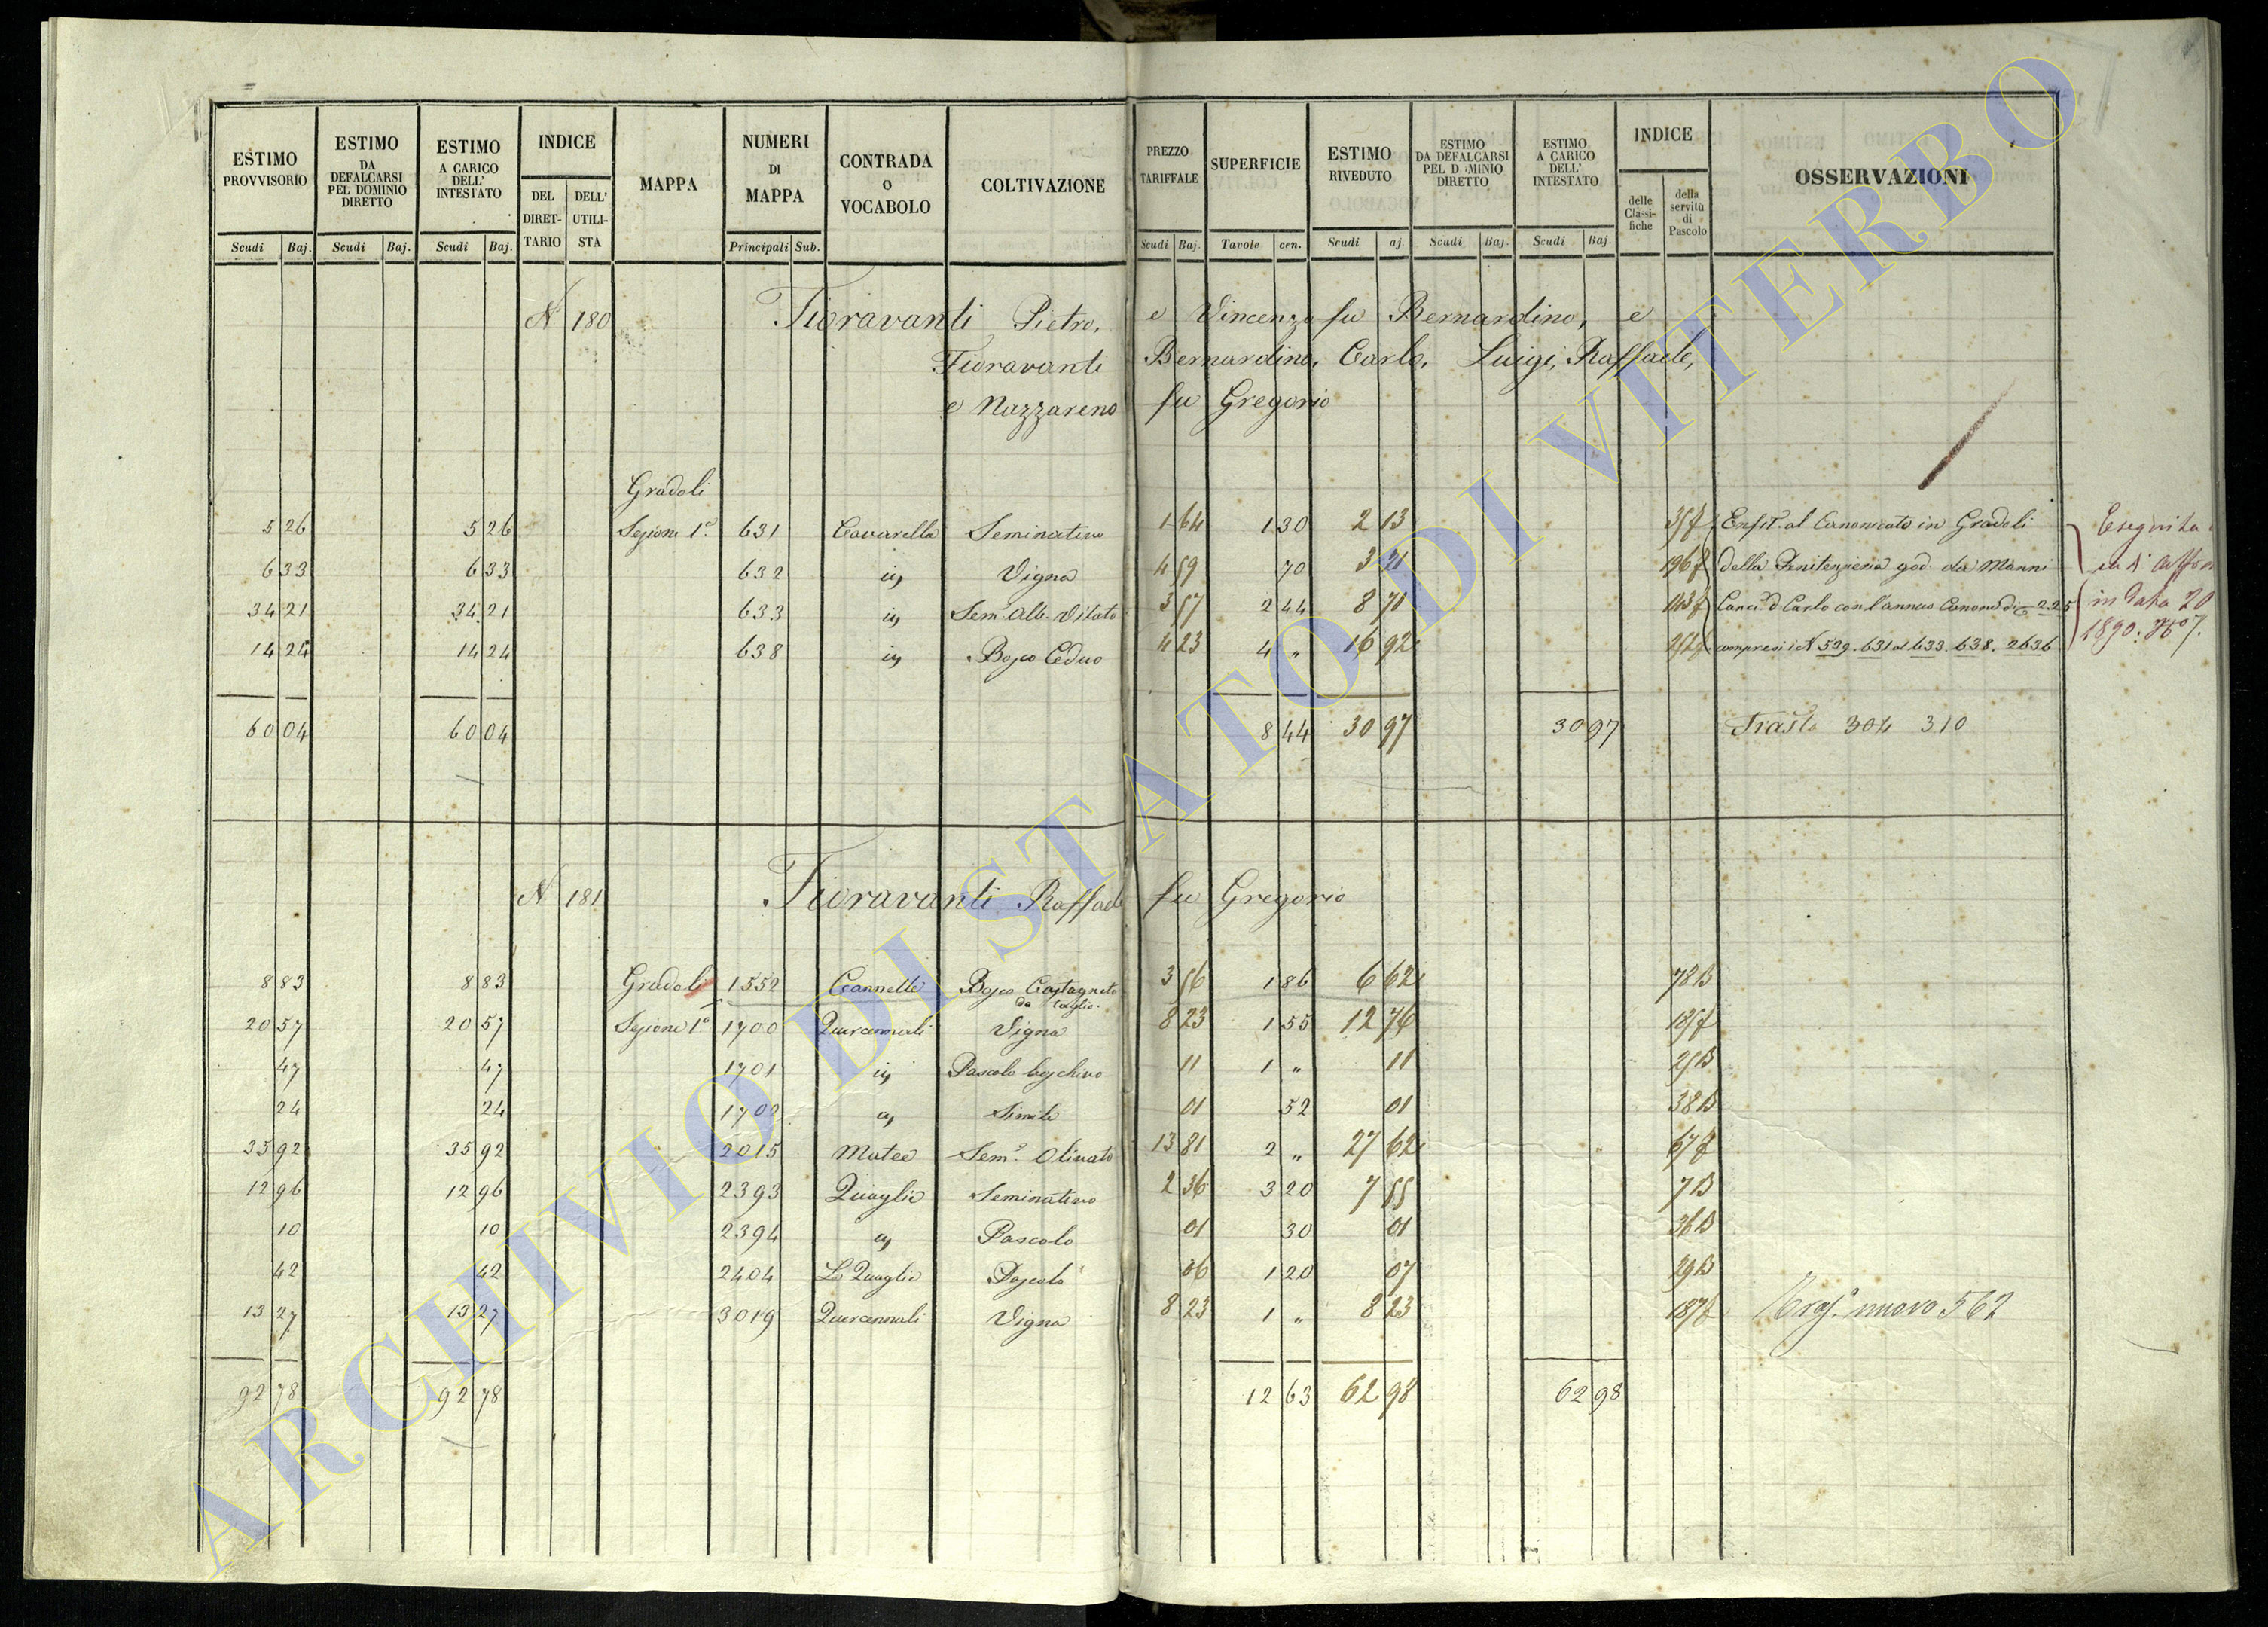 ESTIMO PROVVISORIO | ESTIMO DA DEFALCARSI PEL DOMINIO DIRETTO | ESTIMO A CARICO DELL' INTESTATO | INDICE | MAPPA | NUMERI DI MAPPA | CONTRADA O VOCABOLO | COLTIVAZIONE | PREZZO TARIFFALE | SUPERFICIE | ESTIMO RIVEDUTO | ESTIMO DA DEFALCARSI PEL DOMINIO DIRETTO | ESTIMO A CARICO DELL' INTESTATO | INDICE | OSSERVAZIONI
DEL DIRETTARIO | DELL' UTILISTA | delle Classifiche | della servitù di Pascolo
Scudi | Baj. | Scudi | Baj. | Scudi | Baj. | Principali | Sub. | Scudi | Baj. | Tavole | cen. | Scudi | aj | Scudi | Baj. | Scudi | Baj.
N 180 Fioravanti Pietro, e Vincenzo fu Bernardino, e
Fioravanti Bernardino, Carlo, Luigi, Raffaele,
e Nazzareno fu Gregorio
Gradoli
5 26 | 5 26 | Sezione 1a | 631 | Cavarella | Seminativo | 1 64 | 1 30 | 2 13 | Enfit. al Canonicato in Gradoli
6 33 | 6 33 | 632 | Vigna | 4 59 | 70 | 3 21 | della Penitenzieria god. da Manni
34 21 | 34 21 | 633 | Sem.o Alb. Vitato | 3 57 | 2 44 | 8 71 | Carlo con l'annuo Canone di 2.25
14 24 | 14 24 | 638 | Bosco Ceduo | 4 23 | 4 " | 16 92 | compresi i N 539. 631 al 633. 638. 2636
Eseguita
in data 20
1890:
60 04 | 60 04 | 8 44 | 30 97 | 30 97 | 304 310
N 181 Fioravanti Raffaele fu Gregorio
8 83 | 8 83 | Gradoli | 1552 | Cannelle | Bosco Castagneto da taglio | 3 56 | 1 86 | 6 62 | 78 B
20 57 | 20 57 | Sezione 1a | 1700 | Quercennali | Vigna | 8 23 | 1 55 | 12 76
47 | 47 | 1701 | Pascolo boschivo | 11 | 1 " | 11 | 25 B
24 | 24 | 1702 | Simile | 01 | 52 | 01 | 38 B
35 92 | 35 92 | 2015 | Matee | Sem.o Olivato | 13 81 | 2 " | 27 62
12 96 | 12 96 | 2393 | Quaglie | Seminativo | 2 36 | 3 20 | 7 55 | 7 B
10 | 10 | 2394 | Pascolo | 01 | 30 | 01 | 36 B
42 | 42 | 2404 | Le Quaglie | Pascolo | 06 | 1 20 | 07 | 29 B
13 27 | 13 27 | 3019 | Quercennali | Vigna | 8 23 | 1 " | 8 23 | nuovo 562
92 78 | 92 78 | 12 63 | 62 98 | 62 98
ARCHIVIO DI STATO DI VITERBO